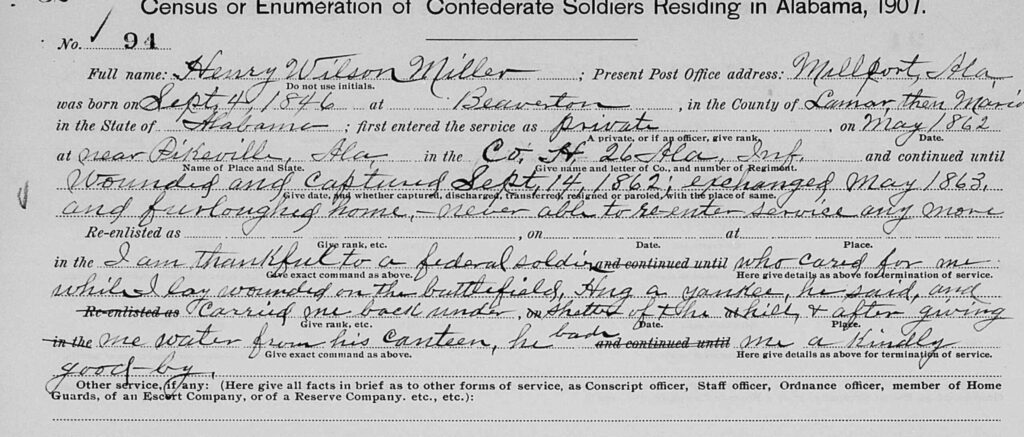 Census or Enumeration of Confederate Soldiers Residing in Alabama, 1907.
No. 94
Full name: Henry Wilson Miller ; Present Post Office address: Millport, Ala
Do not use initials.
was born on Sept, 4, 1846 at Beaverton , in the County of Lamar, then Mario
in the State of Alabama ; first entered the service as private , on May 1862
A private, or if an officer, give rank. Date.
at near Pikeville, Ala in the Co. H. 26 Ala, Inf. and continued until
Name of Place and State. Give name and letter of Co., and number of Regiment.
Wounded and captured Sept, 14, 1862; exchanged May 1863,
Give date, and whether captured, discharged, transferred, resigned or paroled, with the place of same.
and furloughed home, - never able to re-enter service any more
Re-enlisted as , on at
Give rank, etc. Date. Place.
in the I am thankful to a federal soldier and continued until who cared for me
Give exact command as above. Here give details as above for termination of service.
while I lay wounded on the battlefield, Hug a yankee, he said, and
Re-enlisted as Carried me back under, on shelter of the hill, & after giving
Give rank, etc. Date. Place.
in the me water from his canteen, he bade and continued until me a kindly
Give exact command as above. Here give details as above for termination of service.
good-by.
Other service, if any: (Here give all facts in brief as to other forms of service, as Conscript officer, Staff officer, Ordnance officer, member of Home
Guards, of an Escort Company, or of a Reserve Company. etc., etc.):